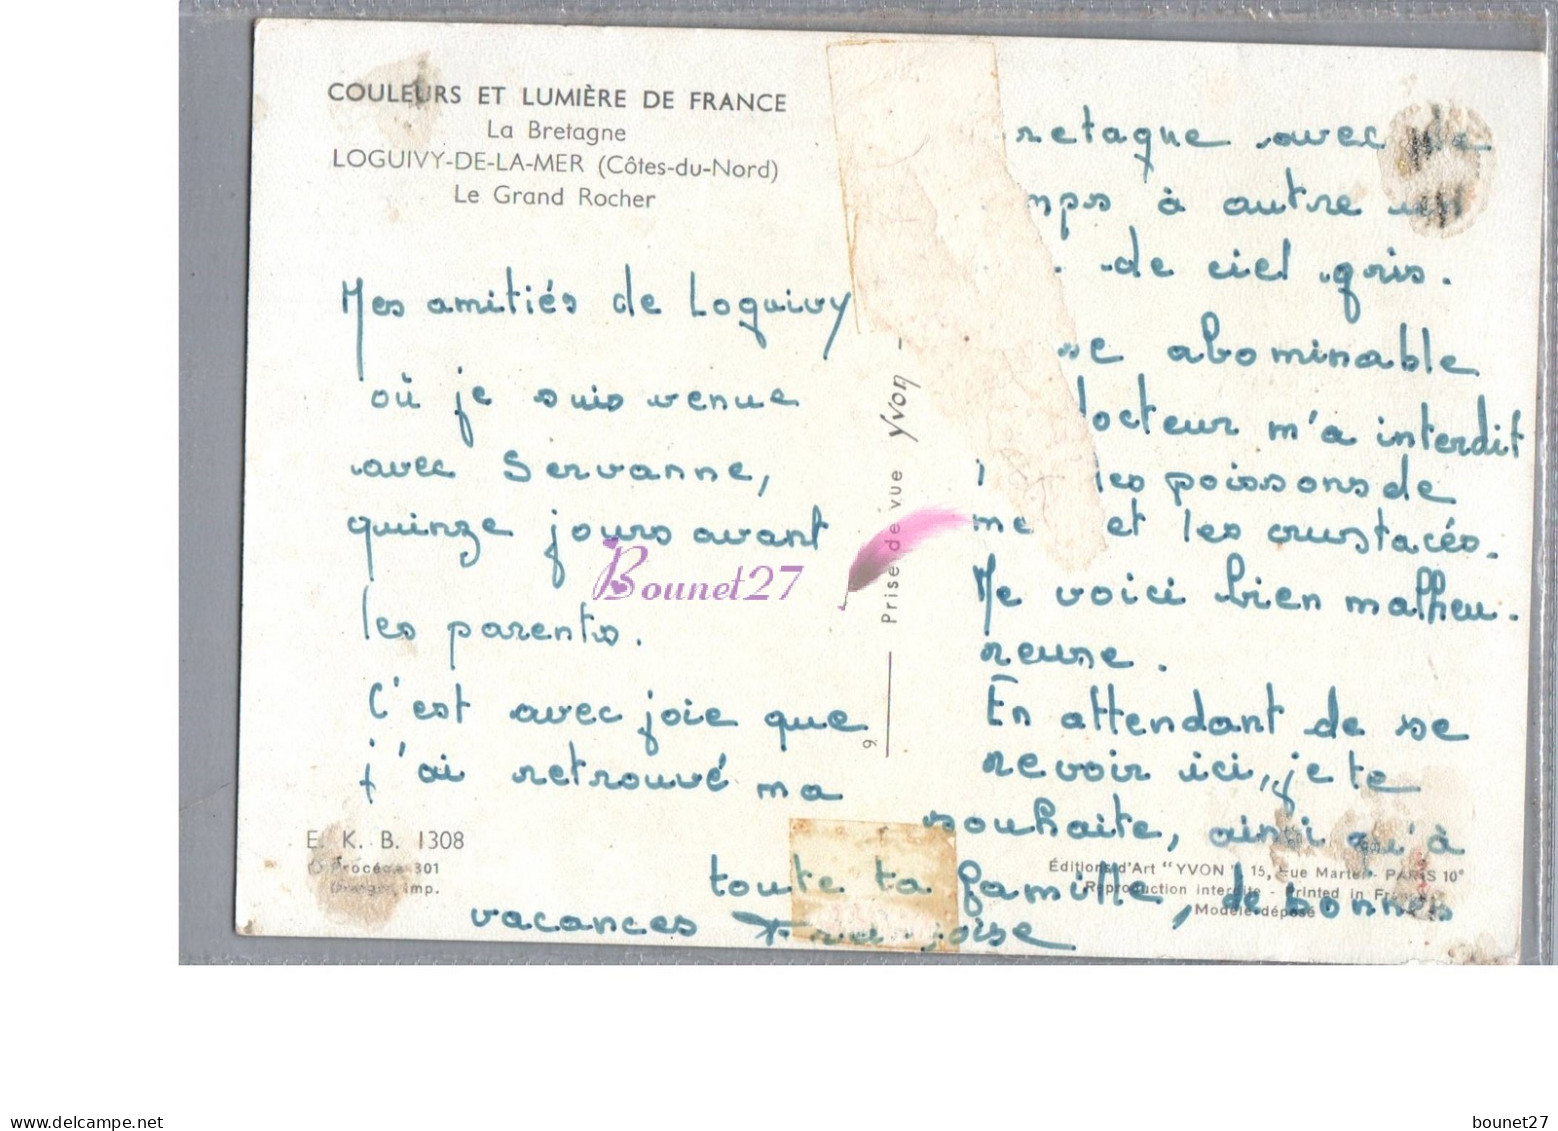 COULEURS ET LUMIÈRE DE FRANCE
La Bretagne
LOGUIVY-DE-LA-MER (Côtes-du-Nord)
Le Grand Rocher
Mes amitiés de Loguivy
où je suis venue
avec Servanne,
quinze jours avant
les parents.
C'est avec joie que
j'ai retrouvé ma
retagne avec de
mps à autre un
de ciel gris.
se abominable
docteur m'a interdit
les poissons de
me et les crustacés.
Me voici bien malheu-
reuse.
En attendant de se
revoir ici, je te
souhaite, ainsi qu'à
toute ta famille, de bonnes
vacances Françoise
Prise de vue Yvon -
9
E. K. B. 1308
Procédé 301
Draeger imp.
Éditions d'Art "YVON", 15, Rue Martel - PARIS 10e
Reproduction interdite - Printed in France
Modèle déposé
Bounet27
https://www.delcampe.net
bounet27